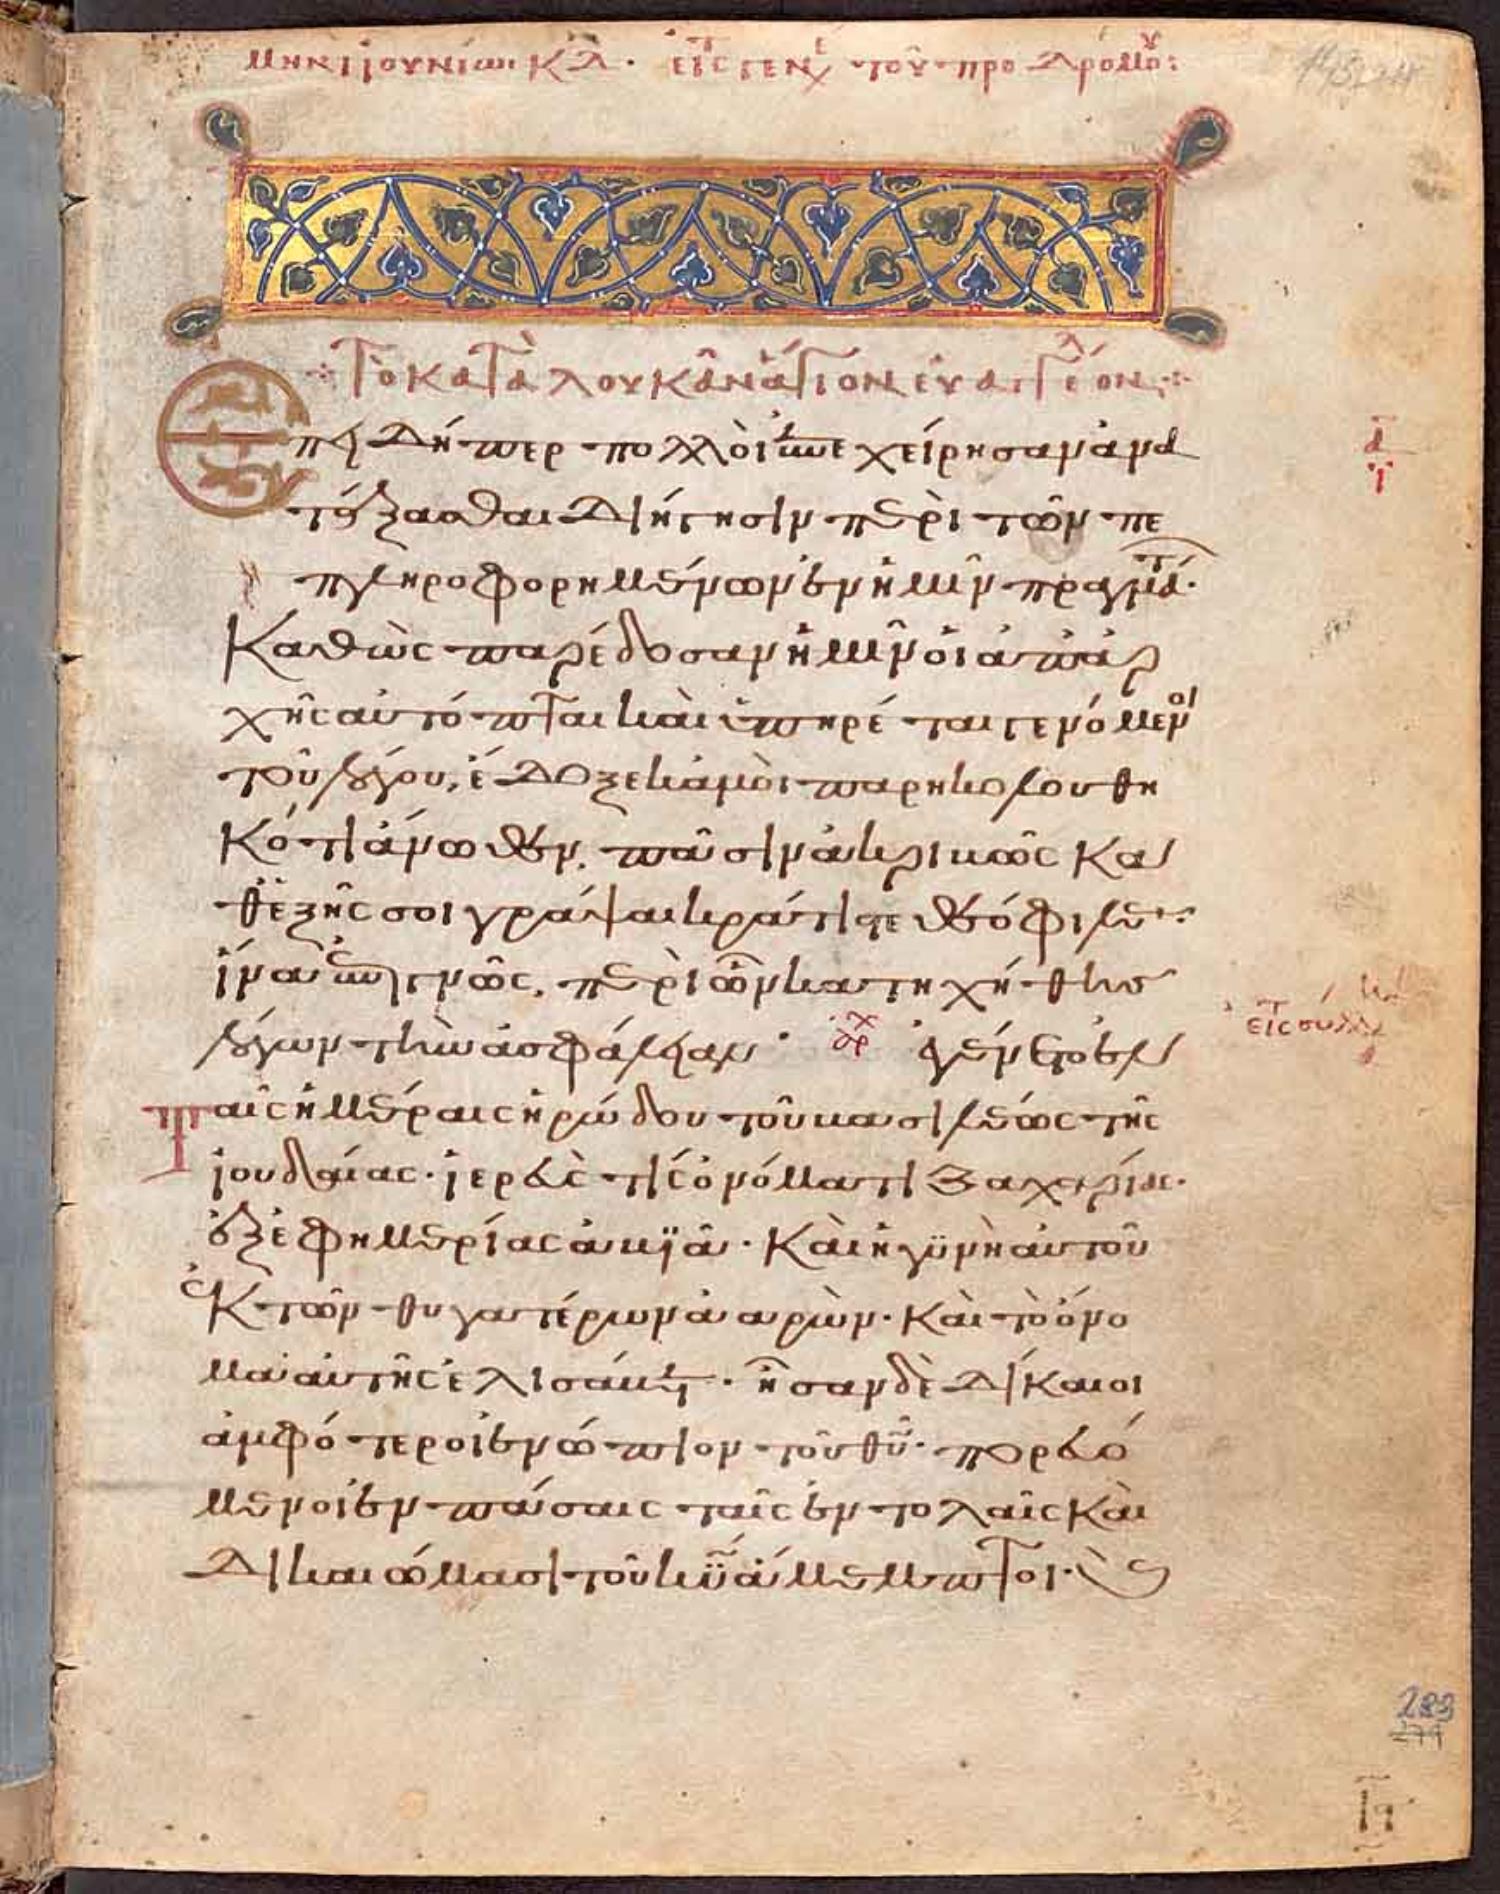 μηνὶ ἰουνίωι κδ · εἰς τ γεν τοῦ προδρόμου:
Τὸ κατὰ λουκᾶν ἅγιον εὐαγγέλον
Ἐπειδήπερ πολλοὶ ἐπεχείρησαν ἀνα
τάξασθαι διήγησιν περὶ τῶν πε
πληροφορημένων ἐν ἡμῖν πραγμάτ·
Καθὼς παρέδοσαν ἡμῖν οἱ ἀπ' ἀρ
χῆς αὐτόπται καὶ ὑπηρέται γενόμενοι
τοῦ λόγου, ἔδοξε κἀμοὶ παρηκολουθη
Κότι ἄνωθεν, πᾶσιν ἀκριβῶς Κα
θεξῆς σοι γράψαι κράτιστε θεόφιλε·
ἵνα ἐπιγνῶς, περὶ ὧν κατηχήθης
λόγων τὴν ἀσφάλειαν · ἀρχ ἐγένετο ἐν
Ταῖς ἡμέραις ἡρώδου τοῦ βασιλέως τῆς
ἰουδαίας· ἱερεὺς τὶς ὀνόματι Ζαχαρίας·
ἐξ ἐφημερίας ἀβϊά· Καὶ ἡ γϋνὴ αὐτοῦ
ἐκ τῶν θυγατέρων ἀαρών· Καὶ τὸ ὄνο
μα αὐτῆς ἐλισάβετ· ἦσαν δὲ δίκαιοι
ἀμφότεροι ἐνώπιον τοῦ θυ· πορευό
μενοι ἐν πάσαις ταῖς ἐντολαῖς Καὶ
Δικαιώμασι τοῦ κυ ἄμεμπτοι·
α
ι
εἰς τ σύλλ
283
279